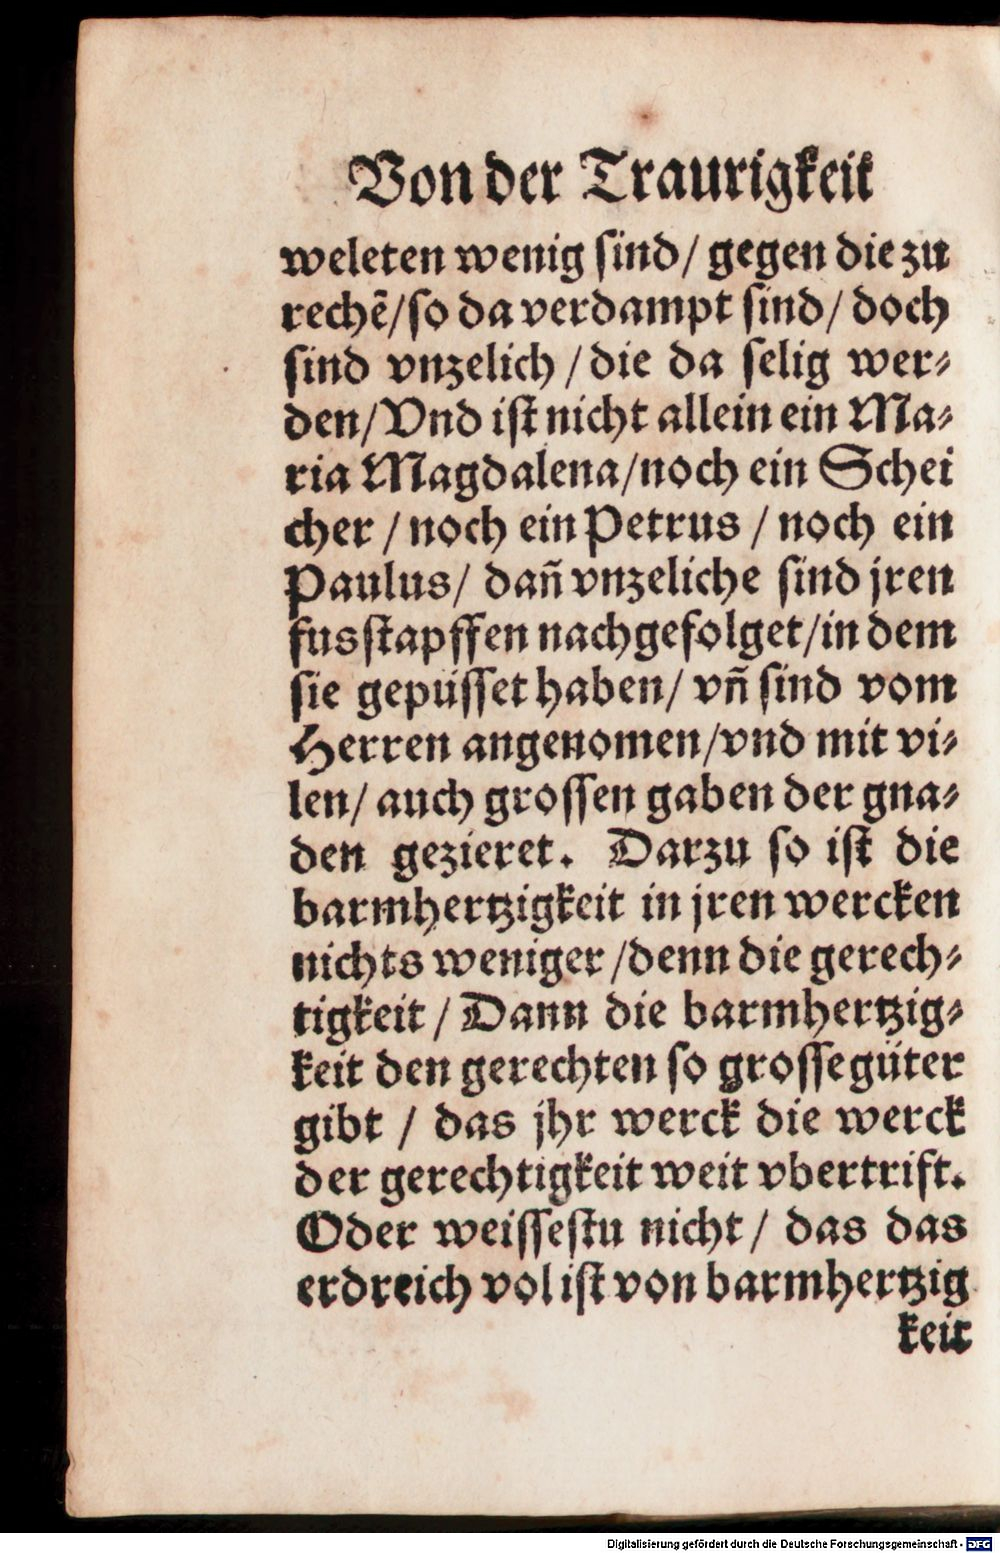 Von der Traurigkeit
weleten wenig sind/ gegen die zu
rechẽ/so da verdampt sind/ doch
sind vnzelich /die da selig wer⸗
den/Vnd ist nicht allein ein Ma⸗
ria Magdalena/noch ein Schei
cher / noch ein Petrus / noch ein
Paulus/ dañ vnzeliche sind jren
fusstapffen nachgefolget/in dem
sie gepüsset haben/ vñ sind vom
Herren angenomen/vnd mit vi⸗
len/ auch grossen gaben der gna⸗
den gezieret. Darzu so ist die
barmhertzigkeit in jren wercken
nichts weniger /denn die gerech⸗
tigkeit / Dann die barmhertzig⸗
keit den gerechten so grosse güter
gibt / das jhr werck die werck
der gerechtigkeit weit vbertrift.
Oder weissestu nicht/ das das
erdreich vol ist von barmhertzig
keit
Digitalisierung gefördert durch die Deutsche Forschungsgemeinschaft - DFG